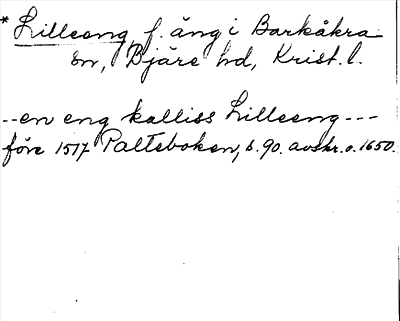 * Lilleeng, f. äng i Barkåkra
sn, Bjäre hd, Krist. l.
--en eng kalliss Lilleeng---
före 1517 Palteboken, s. 90. avskr. o. 1650.